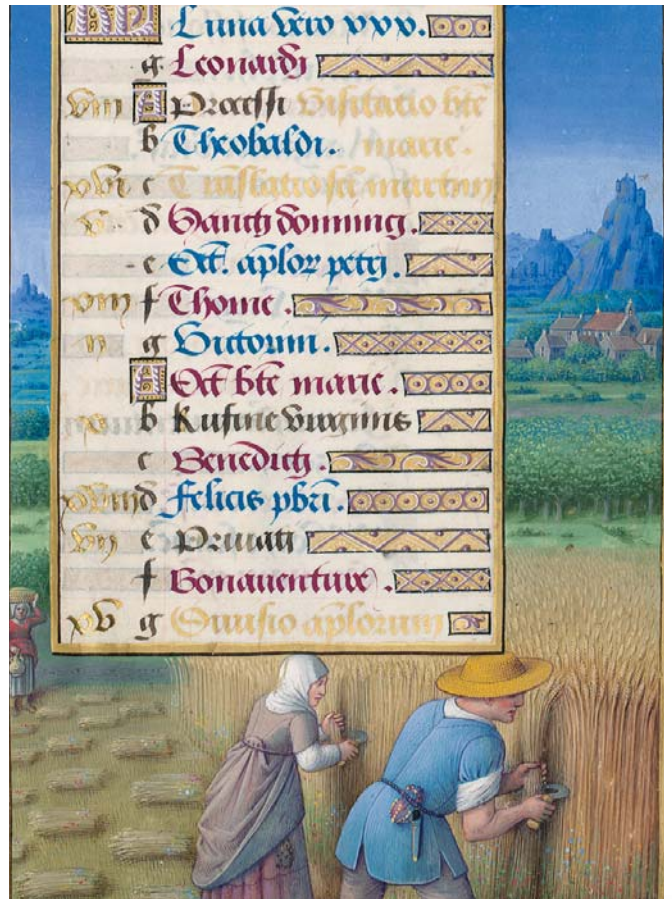 Luna vero xxx.
g Leonardi
A Processi Visitatio bte
b Theobaldi. marie.
xvi c Translatio sci martini
v d Sancti
e Oct. aplor petri.
xiii f Thome.
ii g
A Oct bte marie.
x b Rufine virginis
c Benedicti.
xviii d Felicis pbri.
vii e Privati
f Bonaventure.
xv g Divisio aplorum